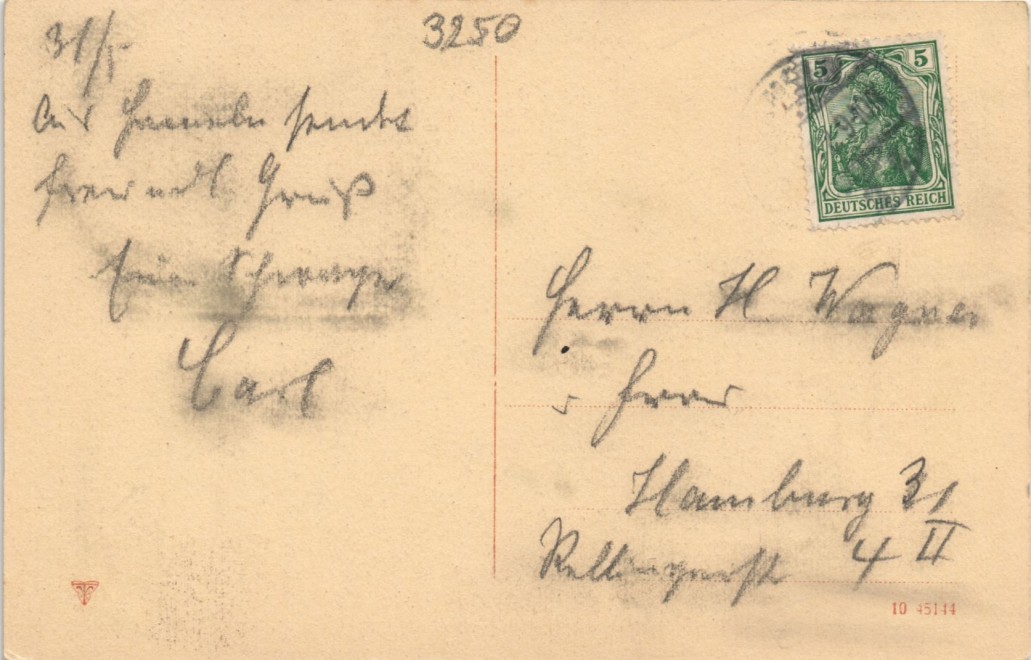 3250
31/5
Aus Hameln sendet
freundl. Gruß
Schwager
Carl
5 5
DEUTSCHES REICH
Herrn H. Wagner
u. Frau
Hamburg 31
Rellingerstr 4 II
10 45144